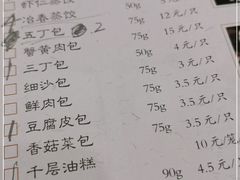 虾仁蒸饺 50g
冶春蒸饺 50g 12元/只
五丁包 2 75g 15元/只
蟹黄肉包 50g 4元/只
三丁包 75g
细沙包 75g 3.5元/只
鲜肉包 75g 3.5元/只
豆腐皮包 50g 3.5元/只
香菇菜包 75g 3.5元/只
千层油糕 90g 10元/笼
4.5元/